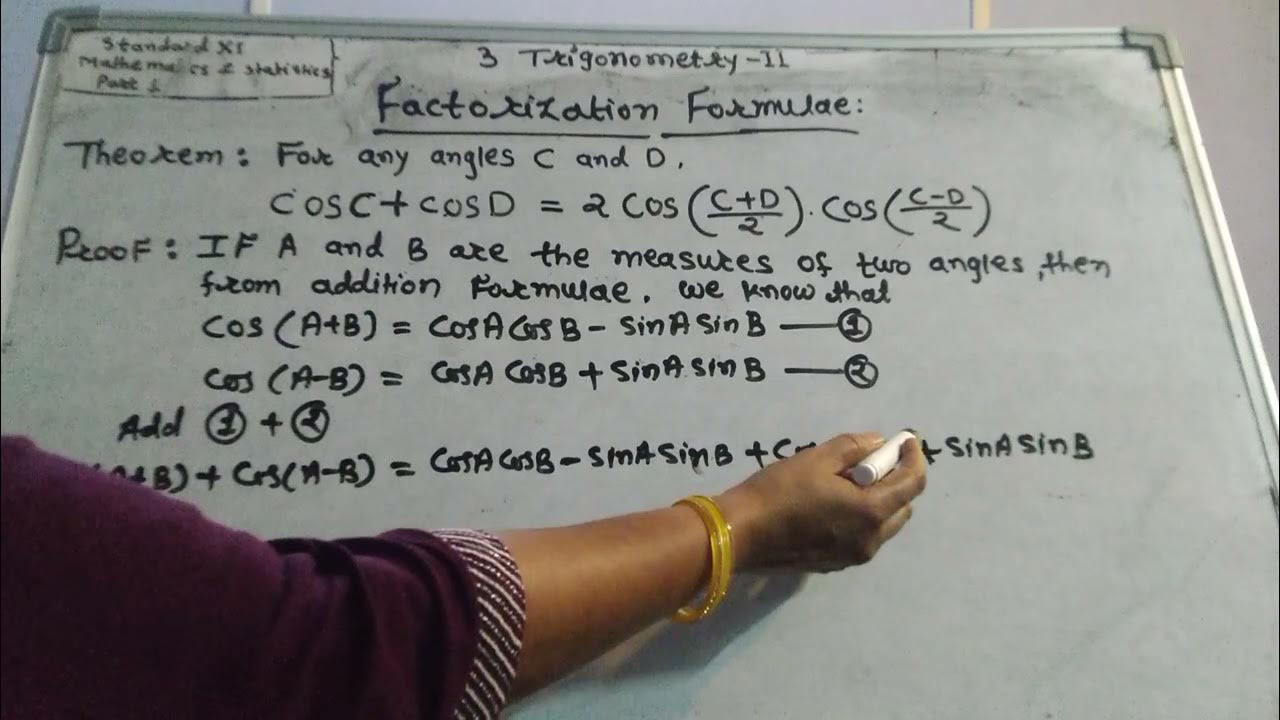 Standard XI
Mathematics & Statistics
Part 1
3 Trigonometry-II
Factorization Formulae:
Theorem: For any angles C and D,
cosC + cosD = 2 cos(C+D/2) . cos(C-D/2)
Proof: If A and B are the measures of two angles, then
from addition Formulae. we know that
cos (A+B) = cosA cosB - sinA sinB — ①
cos (A-B) = cosA cosB + sinA sinB — ②
Add ① + ②
+B) + cos(A-B) = cosA cosB - sinA sinB + + sinA sinB